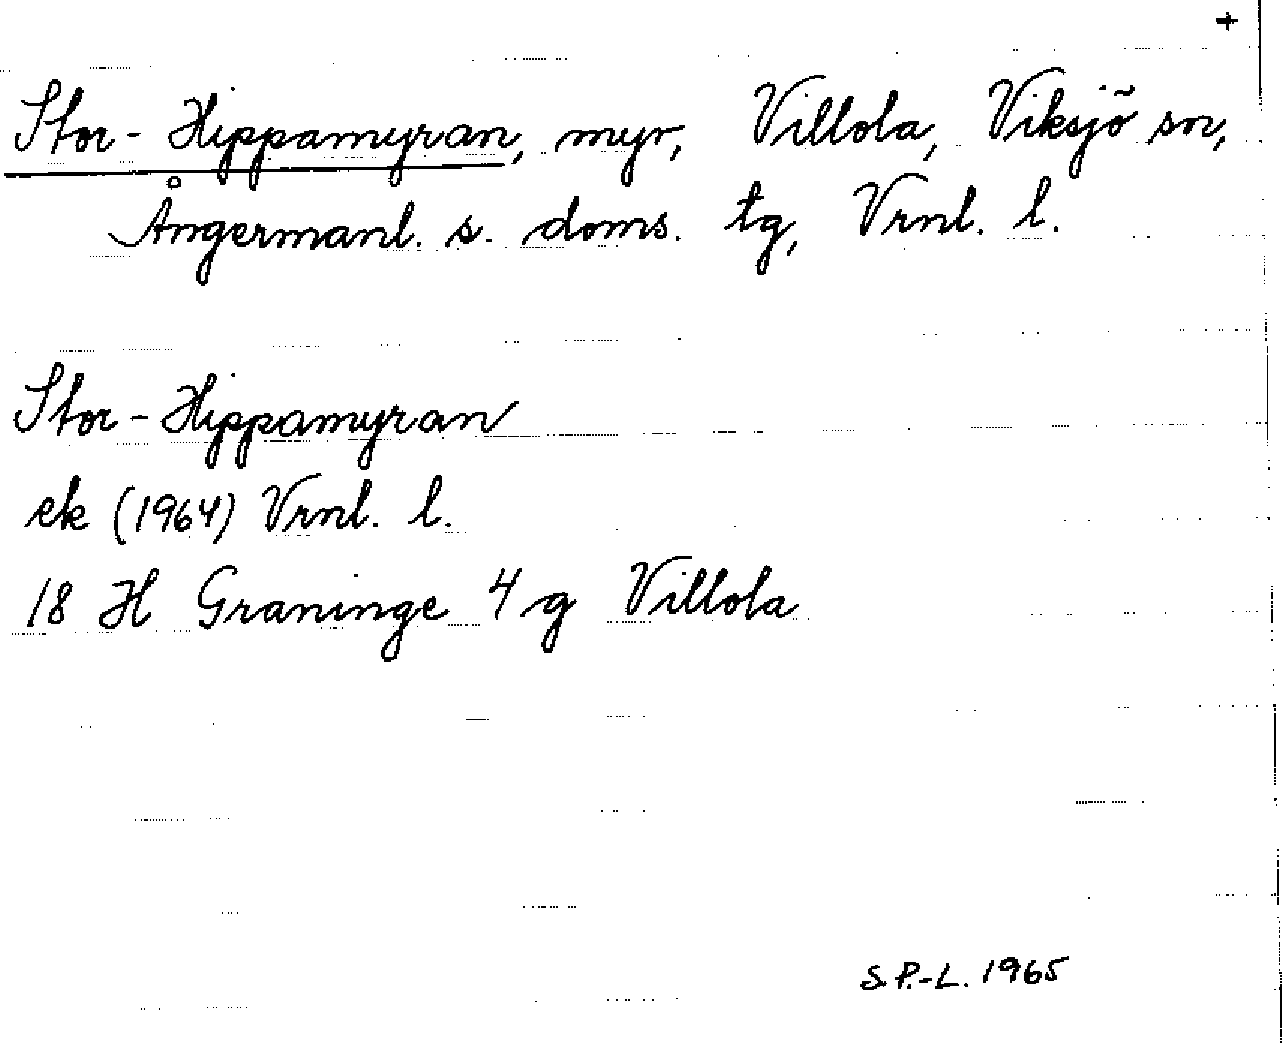 +
Stor-Hippamyran, myr, Villola, Viksjö sn,
Ångermanl. s. doms. tg, Vrnl. l.
Stor-Hippamyran
ek (1964) Vrnl. l.
18 H Graninge 4 g Villola
S.P.-L. 1965